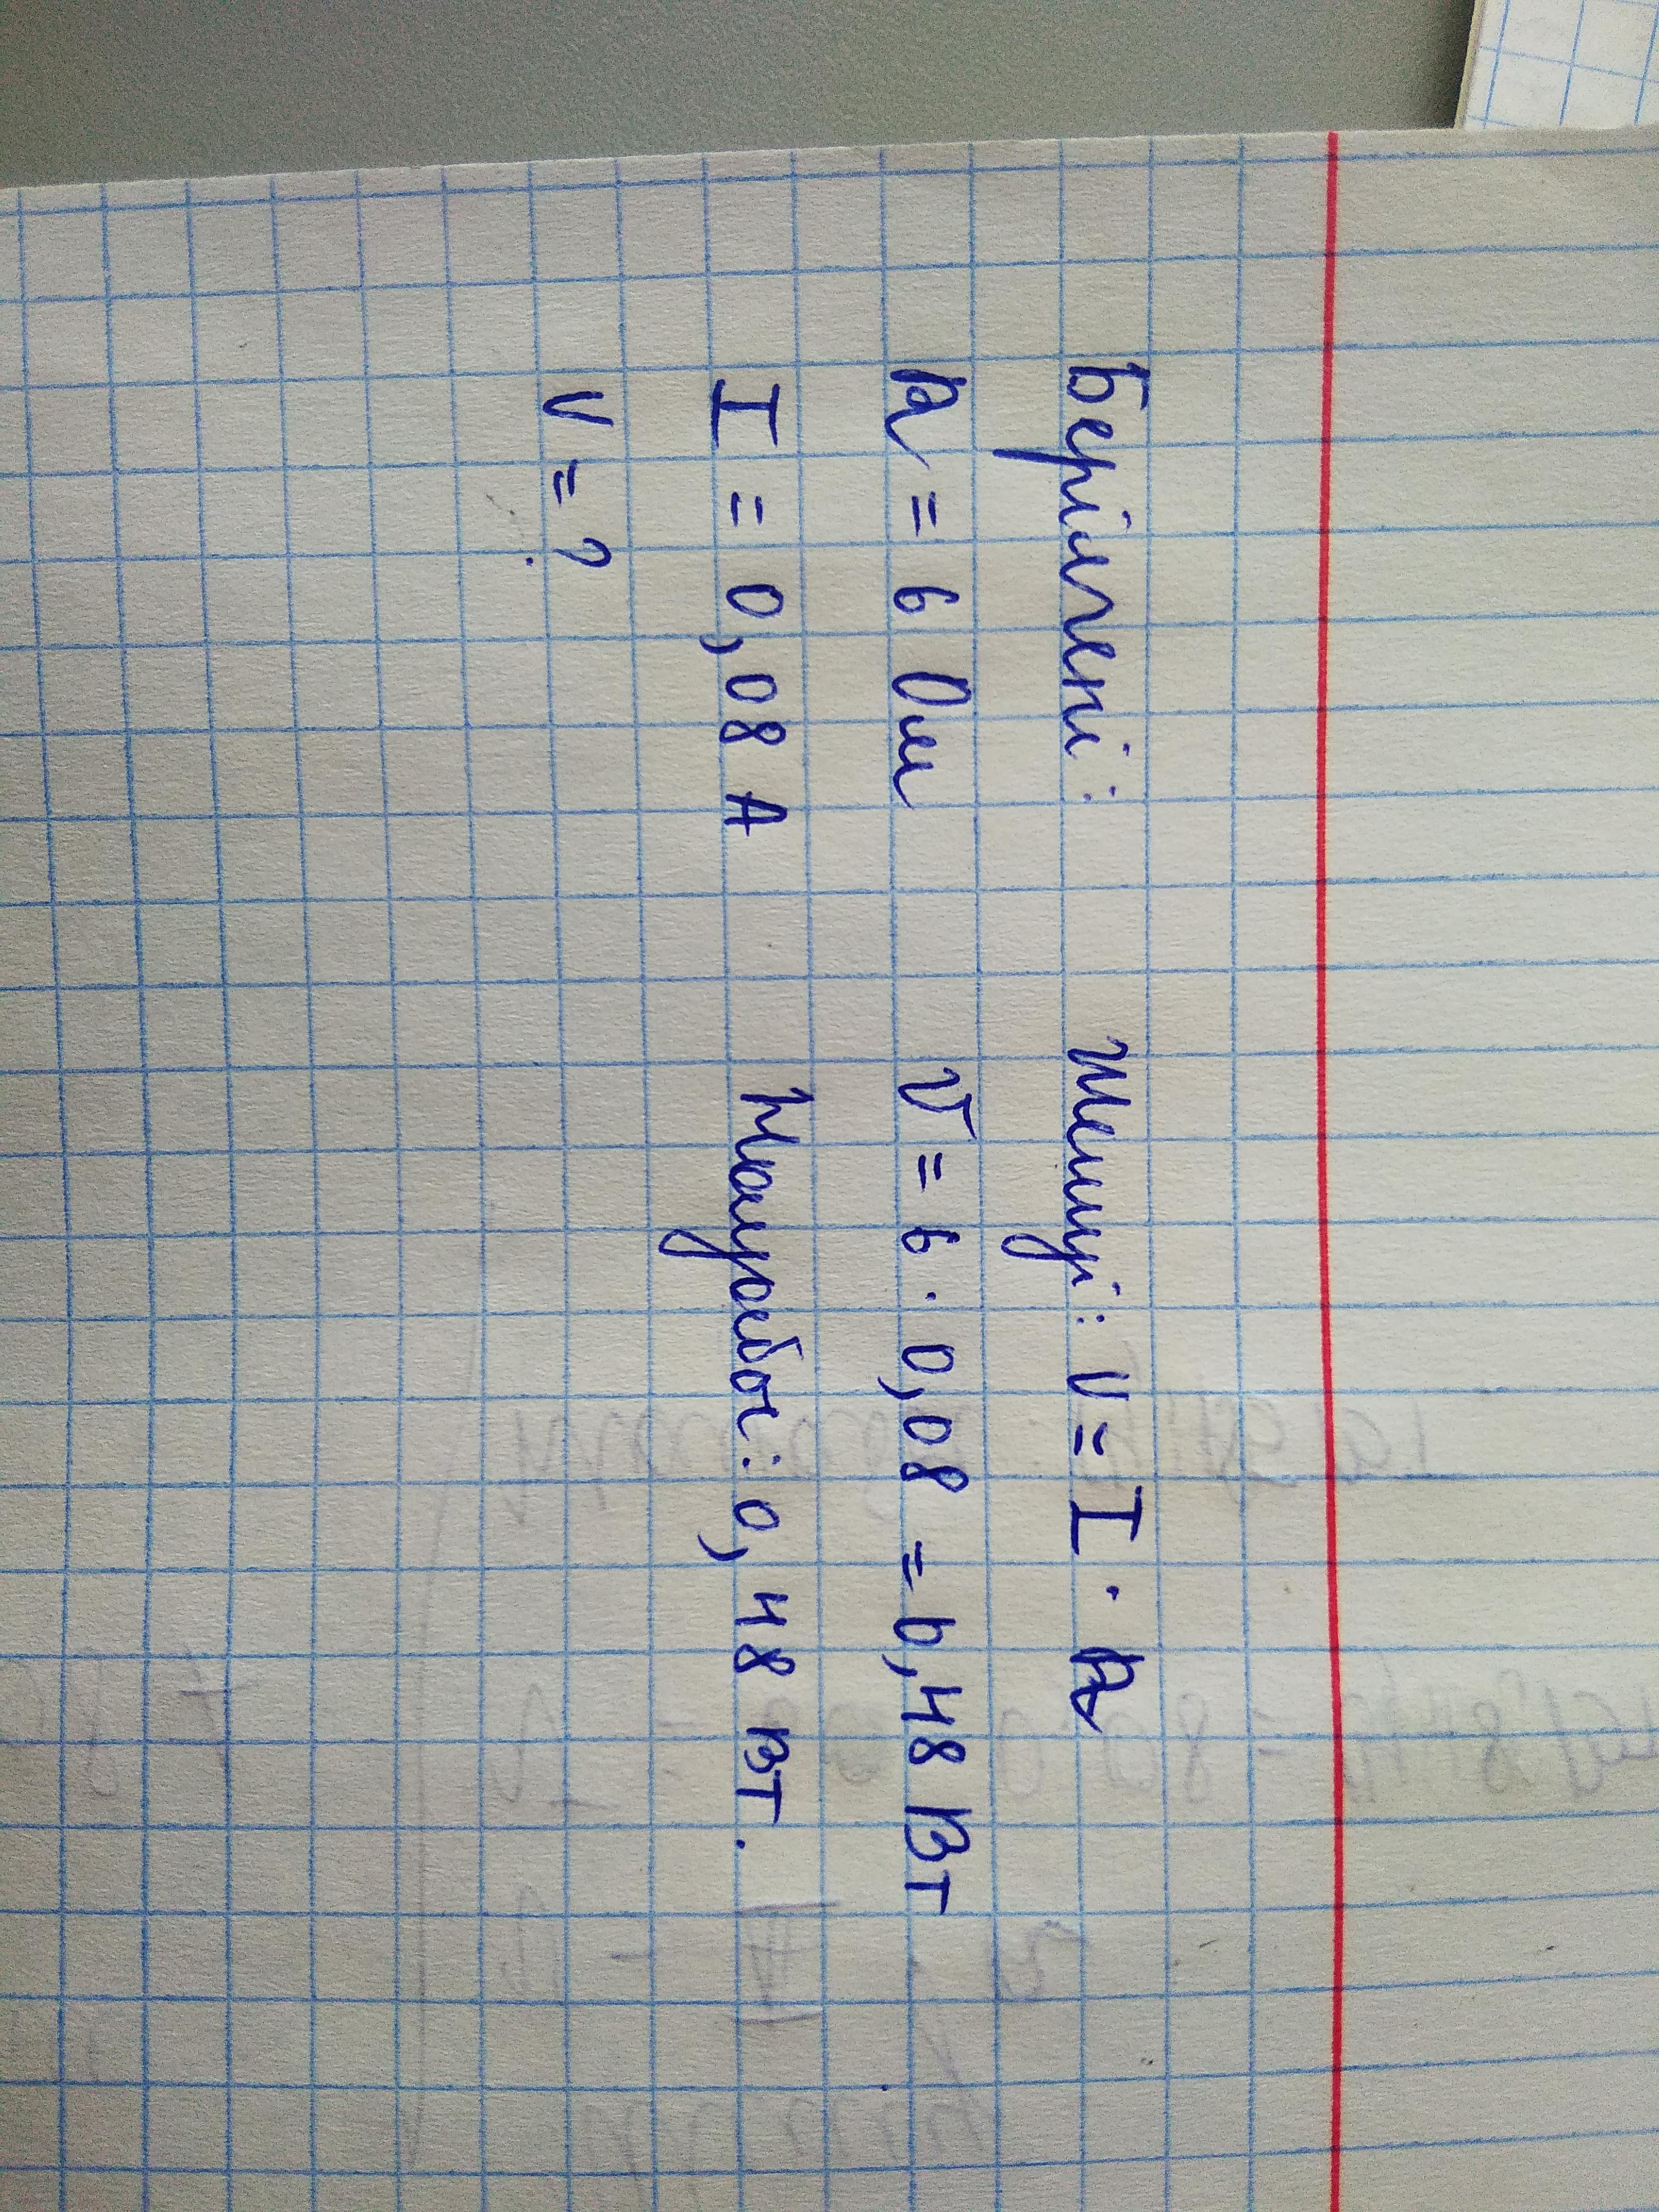 Берілгені: Шешуі: U = I · R
R = 6 Ом U = 6 · 0,08 = 0,48 Вт
I = 0,08 А Жауабы: 0,48 Вт.
U = ?